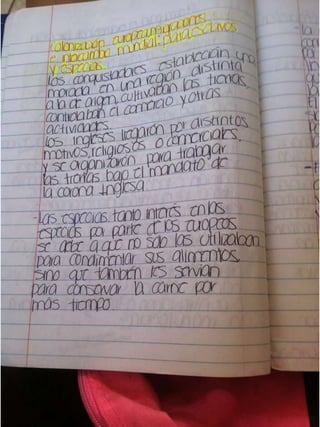 Colonización europea, migraciones
e intercambio mundial para esclavos
y especias.
Los conquistadores establecian una
morada en una región distinta
a la de origen, cultivaban las tierras,
controlaban el comercio y otras
actividades.
Los ingleses llegaron por distintos
motivos, religiosos o comerciales,
y se organizaron para trabajar
las tierras bajo el mandato de
la corona inglesa
-Las especias tanto interés en las
especias por parte de los europeos
se debe a que no solo las utilizaban
para condimentar sus alimentos,
sino que también les servian
para conservar la carne por
más tiempo.